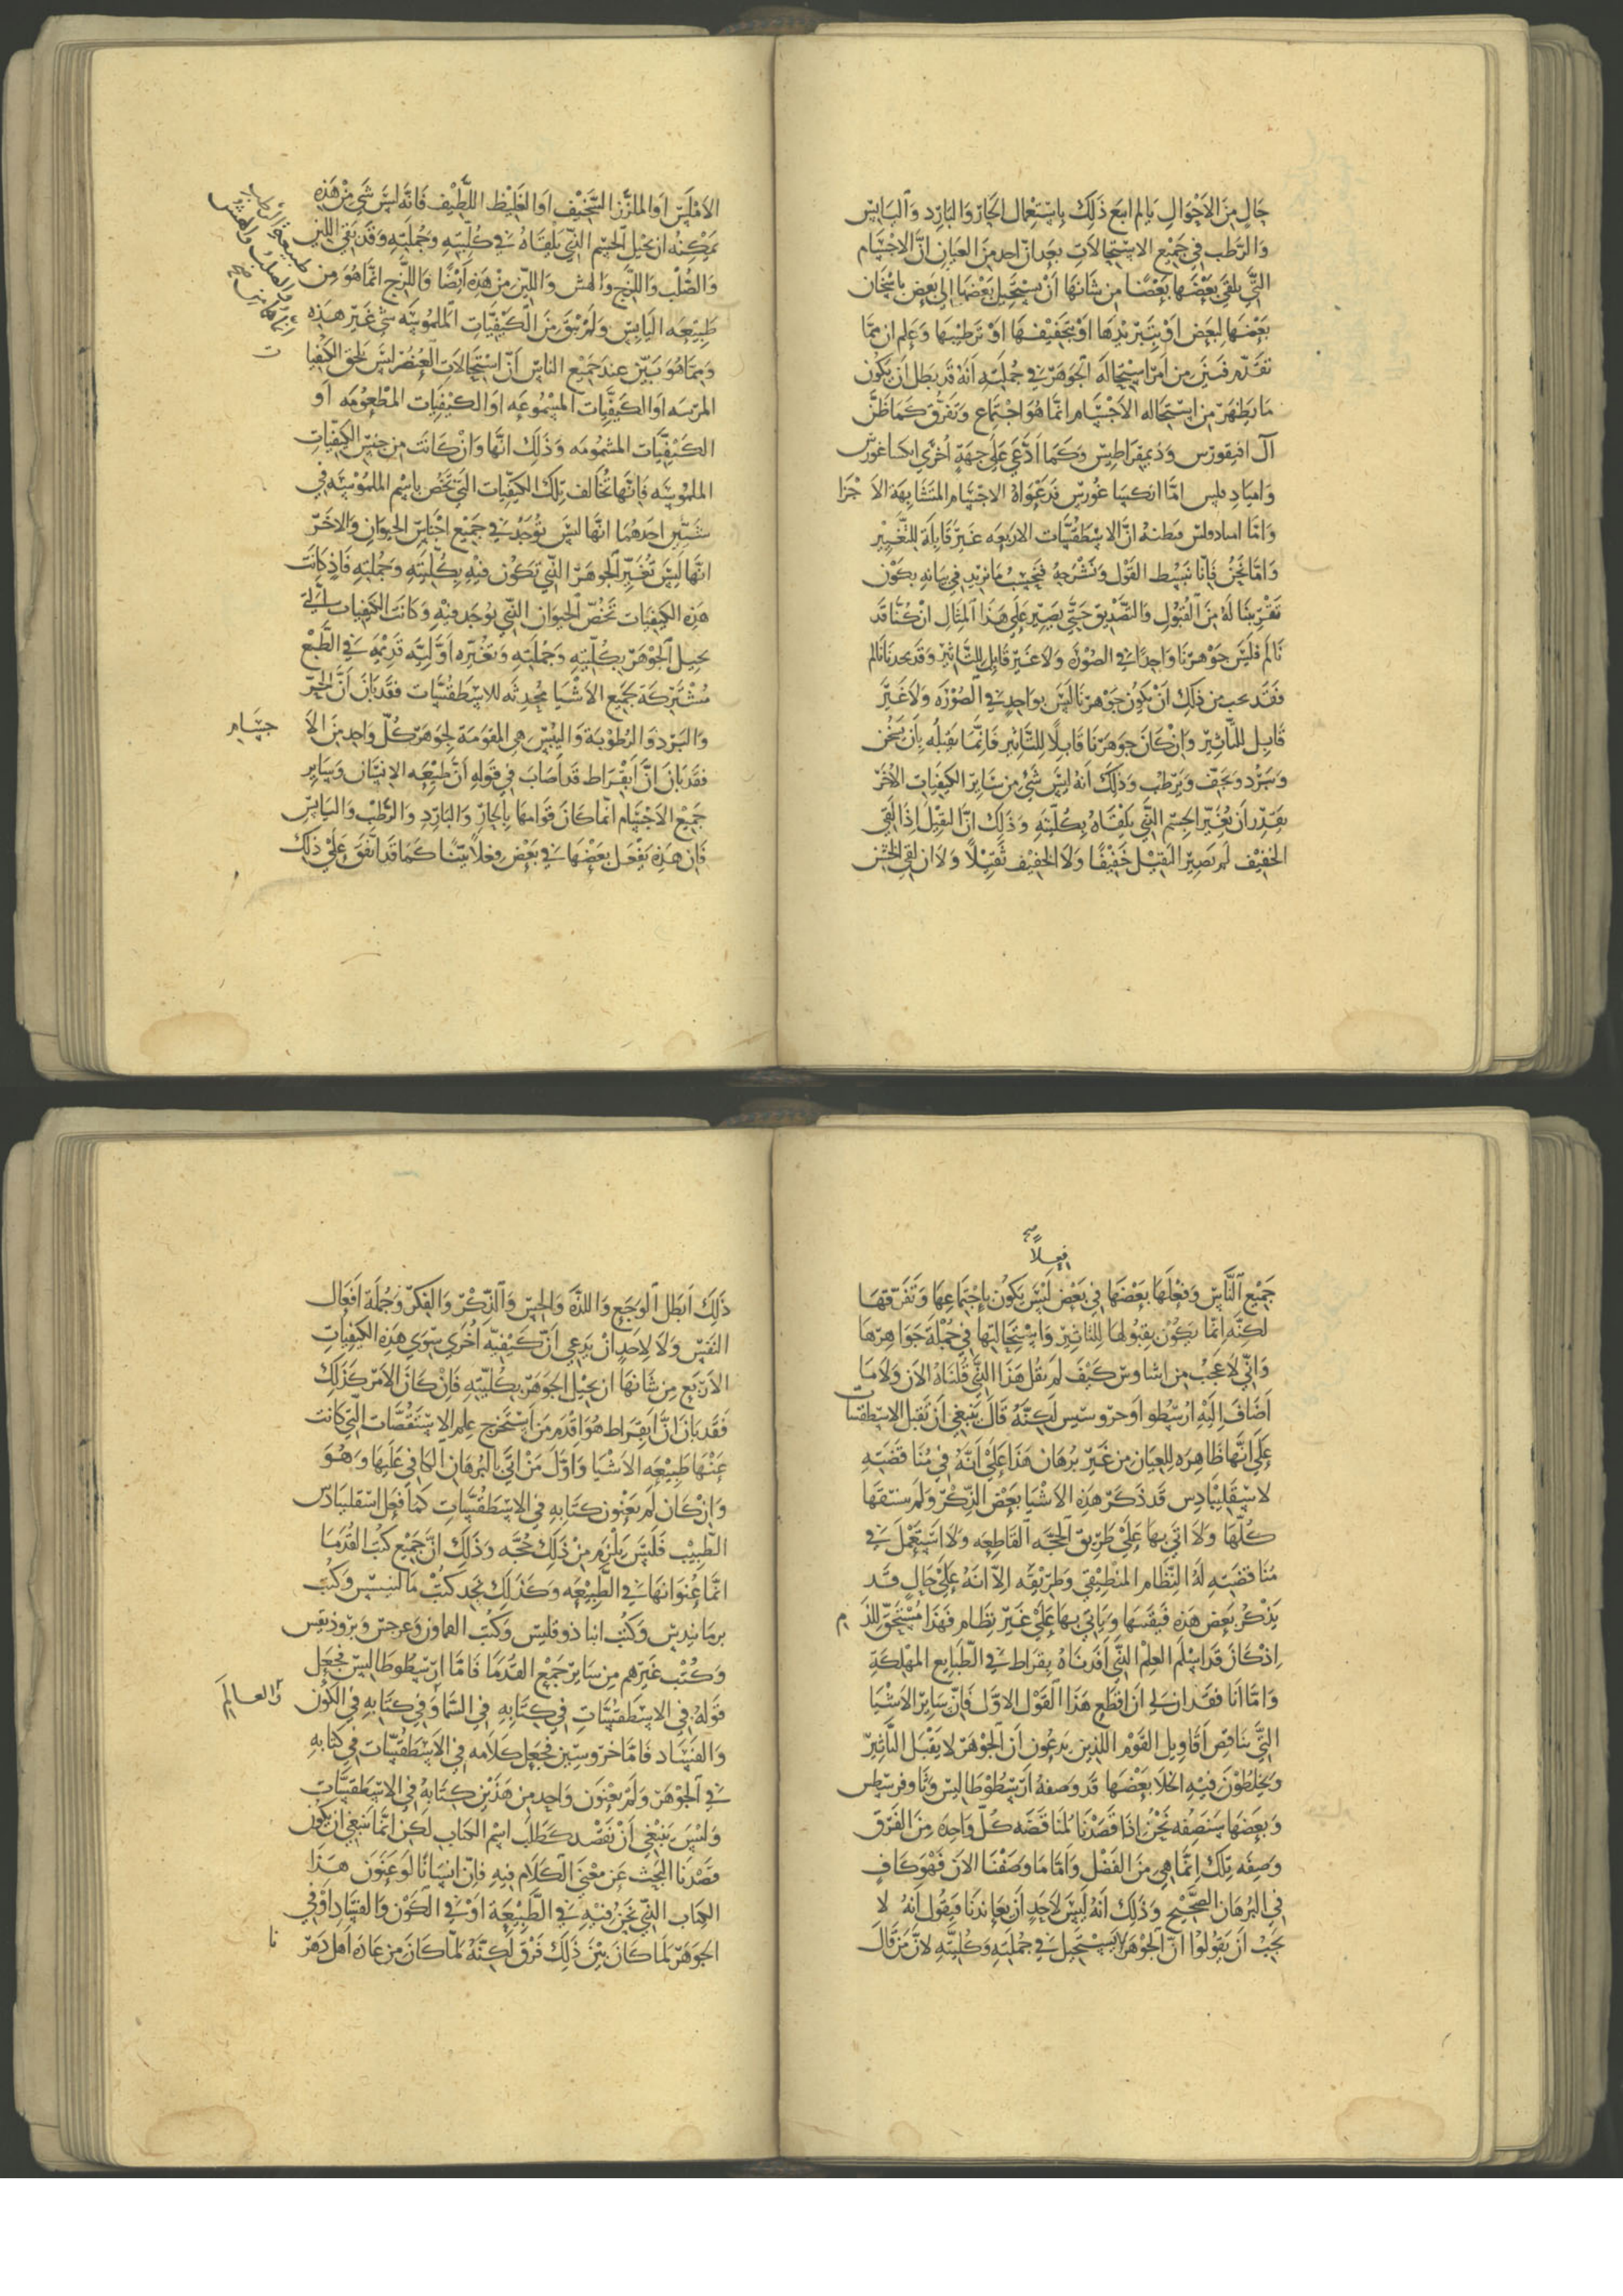 حال من الاحوال يالم ايع ذلك باستعمال الحار والبارد واليابس
والرطب في جميع الاستحالات بعد ان احد من العيان ان الاجسام
التي يلقى بعضها بعضا من شانها ان يستحيل بعضها الى بعض باسخان
بعضها لبعض او بتبريدها او بتجفيفها او ترطيبها وعلم ان مما
تقدم فتبين من امر استحاله الجوهر في جملته انه قد بطل ان يكون
ما يظهر من استحاله الاجسام انما هو اجتماع وتفرق كما ظن
آل افيقورس وذيمقراطيس وكما ادعى على جهة اخرى انكساغورس
وامباد قليس اما انكساغورس فدعواه الاجسام المتشابهة الاجزا
واما امبادوقلس فبظنه ان الاسطقسات الاربعه غير قابلة للتغيير
واما نحن فانا نبسط القول ونشرحه فيجيب ما نريد في بيانه يكون
تقريبنا له من القبول والتصديق حتى يصير على هذا المثال ان كنا قد
نالم فليس جوهرنا واحدا في الصورة ولا غير قابل للتاثير وقد نجدنا نالم
فقد يجب من ذلك ان يكون جوهرنا ليس بواحد في الصورة ولا غير
قابل للتاثير وان كان جوهرنا قابلا للتاثير فانما يقبله بان يسخن
ويبرد ويجف ويرطب وذلك انه ليس شي من ساير الكيفيات الاخر
يقدر ان يغير الجسم الذي يلقاه بكليته وذلك ان الثقيل اذا لقي
الخفيف لم يصير الثقيل خفيفا ولا الخفيف ثقيلا ولا ان لقي الخشن
الاملس او الملزز السخيف او الغليظ اللطيف فانه ليس شي من هذه
يمكنه ان يحيل الجسم الذي يلقاه في كليته وجملته وقد بقى اللين
والصلب واللزج والهش واللين من هذه ايضا واللزج انما هو من
طبيعه اليابس ولم يبق من الكيفيات الملموسه شي غير هذه
ومما هو بين عند جميع الناس ان استحالات العنصر ليس تلحق الكيفيات
المريسه او الكيفيات المسموعه او الكيفيات المطعومه او
الكيفيات المشمومه وذلك انها وان كانت من جنس الكيفيات
الملموسه فانها تخالف تلك الكيفيات التي تخص باسم الملموسه في
شيين احدهما انها ليس توجد في جميع اجناس الحيوان والاخر
انها ليس تغير الجوهر الذي تكون فيه بكليته وجملته فاذ كانت
هذه الكيفيات تخص الحيوان الذي يوجد فيه وكانت الكيفيات التي
يحيل الجوهر بكليته وجملته وتغيره اوليه قديمة في الطبع
مشتركة لجميع الاشيا محدثه للاسطقسات فقد بان ان الحر
والبرد والرطوبة واليبس هي المقومة لجوهر كل واحد من الاجسام
فقد بان ان ابقراط قد اصاب في قوله ان طبيعه الانسان وساير
جميع الاجسام انما كان قوامها بالحار والبارد والرطب واليابس
فان هذه يفعل بعضها في بعض فعلا بينا كما قد اتفق على ذلك
فعلا صح
جميع الناس وفعلها بعضها في بعض ليس يكون باجتماعها وتفرقها
لكنه انما يكون بقبولها للتاثير واستحالتها في جملة جواهرها
واني لاعجب من اثناوس كيف لم يقل هذا الذي قلناه الان ولا ما
اضاف اليه ارسطو او خروسبس لكنه قال ينبغي ان نقبل الاسطقسات
على انها ظاهره للعيان من غير برهان هذا على انه في مناقضته
لاسقليبادس قد ذكر هذه الاشيا بعض الذكر ولم يستقها
كلها ولا اتى بها على طريق الحجه القاطعه ولا استعمل في
مناقضته له النظام المنطيقي وطريقه الا انه على حال قد
يذكر بعض هذه فيقسها وياتي بها على غير نظام فهذا مستحق للذم
اذ كان قد اسلم العلم الذي افدناه بقراط في الطبايع المهلكة
واما انا فقد ان لي ان اقطع هذا القول الاول فان ساير الاشيا
التي تناقض اقاويل القوم اللذين يدعون ان الجوهر لا يقبل التاثير
ويخلطون فيه الخلا بعضها قد وصفه ارسطوطاليس وثاوفرسطس
وبعضها سنصفه نحن اذا قصدنا لمناقضه كل واحده من الفرق
وصفه تلك انما هي من الفضل واما ما وصفنا الان فهو كاف
في البرهان الصحيح وذلك انه ليس لاحد ان يعاندنا فيقول انه لا
يجب ان يقولوا ان الجوهر لا يستحيل في جملته وكليته لان من قال
ذلك ابطل الوجع واللذه والحس والذكر والفكر وجملة افعال
النفس ولا لاحد ان يدعي ان كيفيه اخرى سوى هذه الكيفيات
الاربع من شانها ان يحيل الجوهر بكليته فان كان الامر كذلك
فقد بان ان ابقراط هو اقدم من استخرج علم الاستقصات التي كانت
عنها طبيعه الاشيا واول من اتى بالبرهان الكافي عليها وهو
وان كان لم يعنون كتابه في الاسطقسات كما فعل اسقلبيادس
الطبيب فليس يلزم من ذلك حجه وذلك ان جميع كتب القدما
انما عنوانها في الطبيعه وكذلك نجد كتب مالسيس وكتب
برمانيدس وكتب انبا ذوقليس وكتب القماون وعرجس وبروذيقس
وكتب غيرهم من ساير جميع القدما فاما ارسطوطاليس فجعل
قوله في الاسطقسات في كتابه في السما والعالم وفي كتابه في الكون
والفساد فاما خروسبس فجعل كلامه في الاسطقسات في كتابه
في الجوهر ولم يعنون واحد من هذين كتابه في الاسطقسات
وليس ينبغي ان نقصد كطلب اسم الكتاب لكن انما ينبغي ان يكون
قصدنا البحث عن معنى الكلام فيه فان انسانا لو عنون هذا
الكتاب الذي نحن فيه في الطبيعة او في الكون والفساد او في
الجوهر لما كان بين ذلك فرق لكنه لما كان من عادة اهل دهرنا